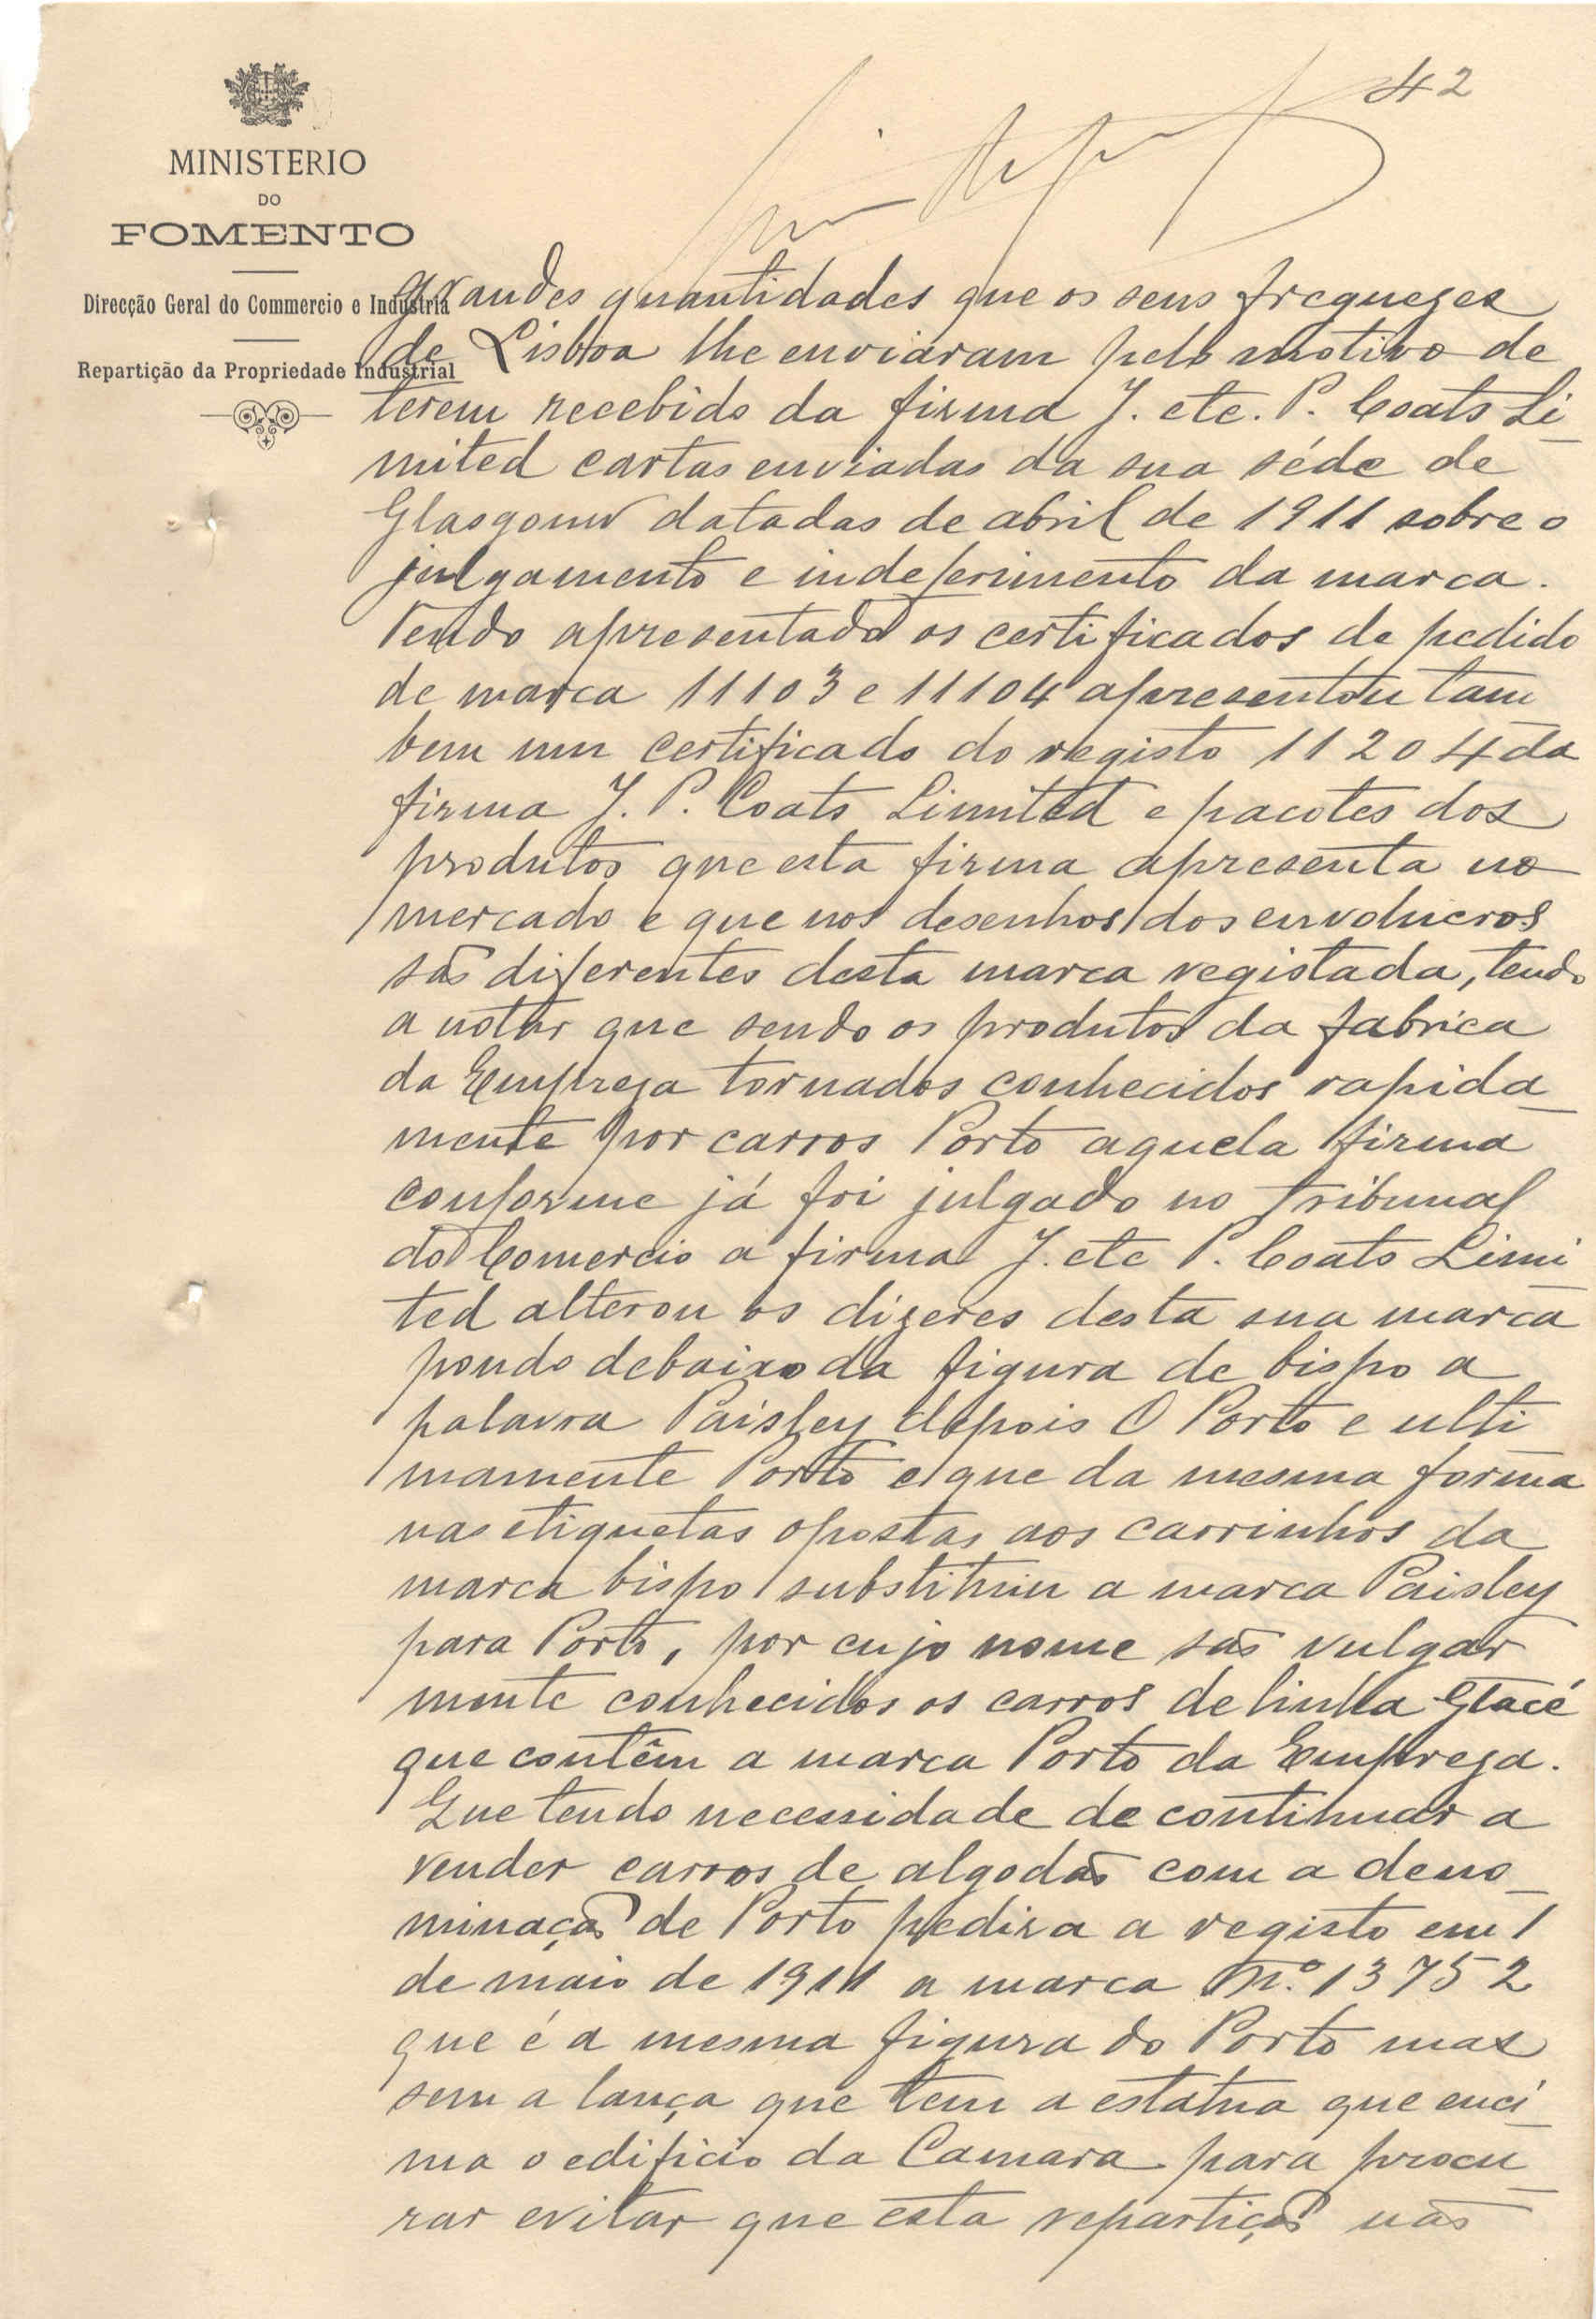 42
MINISTERIO
DO
FOMENTO
Direcção Geral do Commercio e Industria
Repartição da Propriedade Industrial
grandes quantidades que os seus freguezes
de Lisboa lhe enviaram pelo motivo de
terem recebido da firma J. etc. P. Coats Li
mited cartas enviadas da sua séde de
Glasgouw datadas de abril de 1911 sobre o
julgamento e indeferimento da marca.
Tendo apresentado os certificados de pedido
de marca 11103 e 11104 apresentou tam
bem um certificado do registo 11204 da
firma J. P. Coats Limited e pacotes dos
produtos que esta firma apresenta no
mercado e que nos desenhos dos envolucros
são diferentes desta marca registada, tendo
a notar que sendo os produtos da fabrica
da Empreza tornados conhecidos rapida
mente por carros Porto aquela firma
conforme já foi julgado no tribunal
do Comercio a firma J. etc P. Coats Limi
ted alterou os dizeres desta sua marca
pondo debaixo da figura de bispo a
palavra Paisley depois O Porto e ulti
mamente Porto e que da mesma forma
nas etiquetas opostas aos carrinhos da
marca bispo substituiu a marca Paisley
para Porto, por cujo nome são vulgar
mente conhecidos os carros de linha Glacé
que contêm a marca Porto da Empreza.
Que tendo necessidade de continuar a
vender carros de algodão com a deno
minação de Porto pedira a registo em 1
de maio de 1911 a marca N.º 13752
que é a mesma figura do Porto mas
sem a lança que tem a estatua que enci
ma o edificio da Camara para procu
rar evitar que esta repartição não